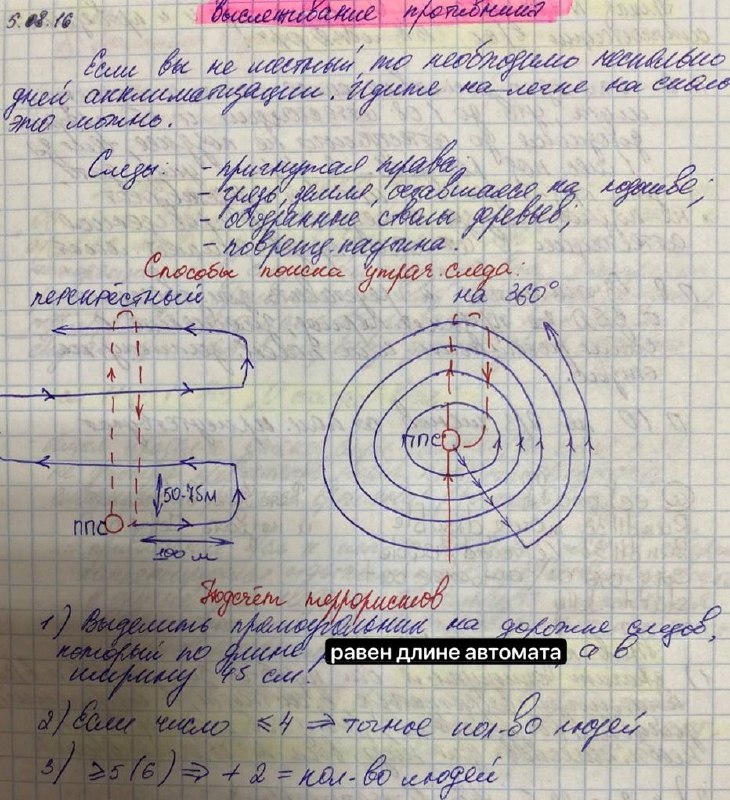 5.08.16 Выслеживание противника
Если вы не местный, то необходимо несколько
дней акклиматизации. Идите на легке на сколько
это можно.
Следы: - пригнутая трава;
- грязь, земля, оставшаяся на подошве;
- ободранные стволы деревьев;
- поврежд. паутина.
Способы поиска утрач. следа:
перекрёстный на 360°
ППС 50-75м
100 м
ППС
Подсчёт террористов
1) Выделить прямоугольник на дорожке следов,
который по длине равен длине автомата, а в
ширину 45 см.
2) Если число ≤4 ⇒ точное кол-во людей
3) ≥5(6) ⇒ +2 = кол-во людей